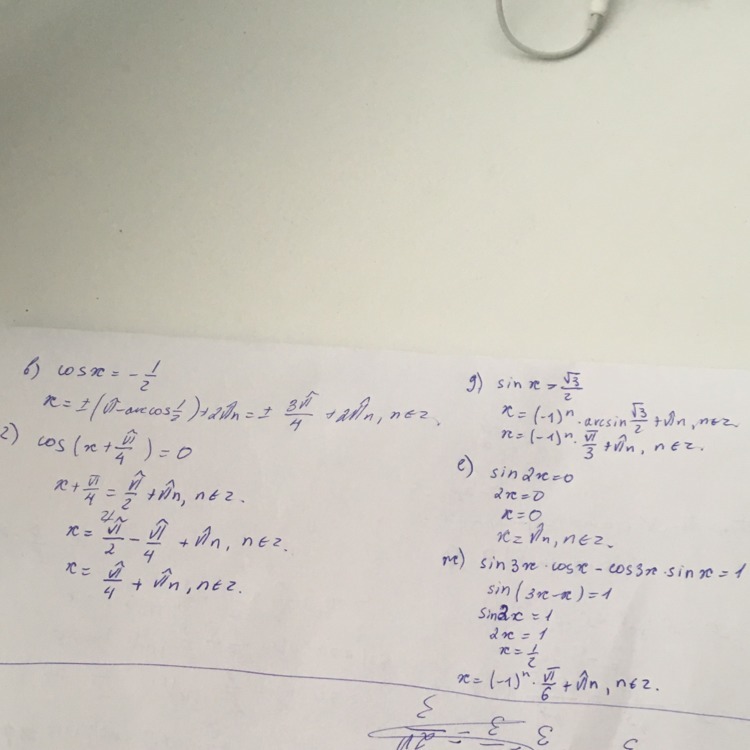 в) cosx = - 1/2
x = ±(π - arccos 1/2) + 2πn = ± 3π/4 + 2πn, n∈z.
г) cos(x + π/4) = 0
x + π/4 = π/2 + πn, n∈z.
x = π/2 - π/4 + πn, n∈z.
x = π/4 + πn, n∈z.
g) sinx = √3/2
x = (-1)ⁿ · arcsin √3/2 + πn, n∈z.
x = (-1)ⁿ · π/3 + πn, n∈z.
е) sin2x=0
2x=0
x=0
x=πn, n∈z.
ж) sin3x·cosx - cos3x·sinx = 1
sin(3x-x)=1
sin2x=1
2x=1
x=1/2
x=(-1)ⁿ·π/6+πn, n∈z.